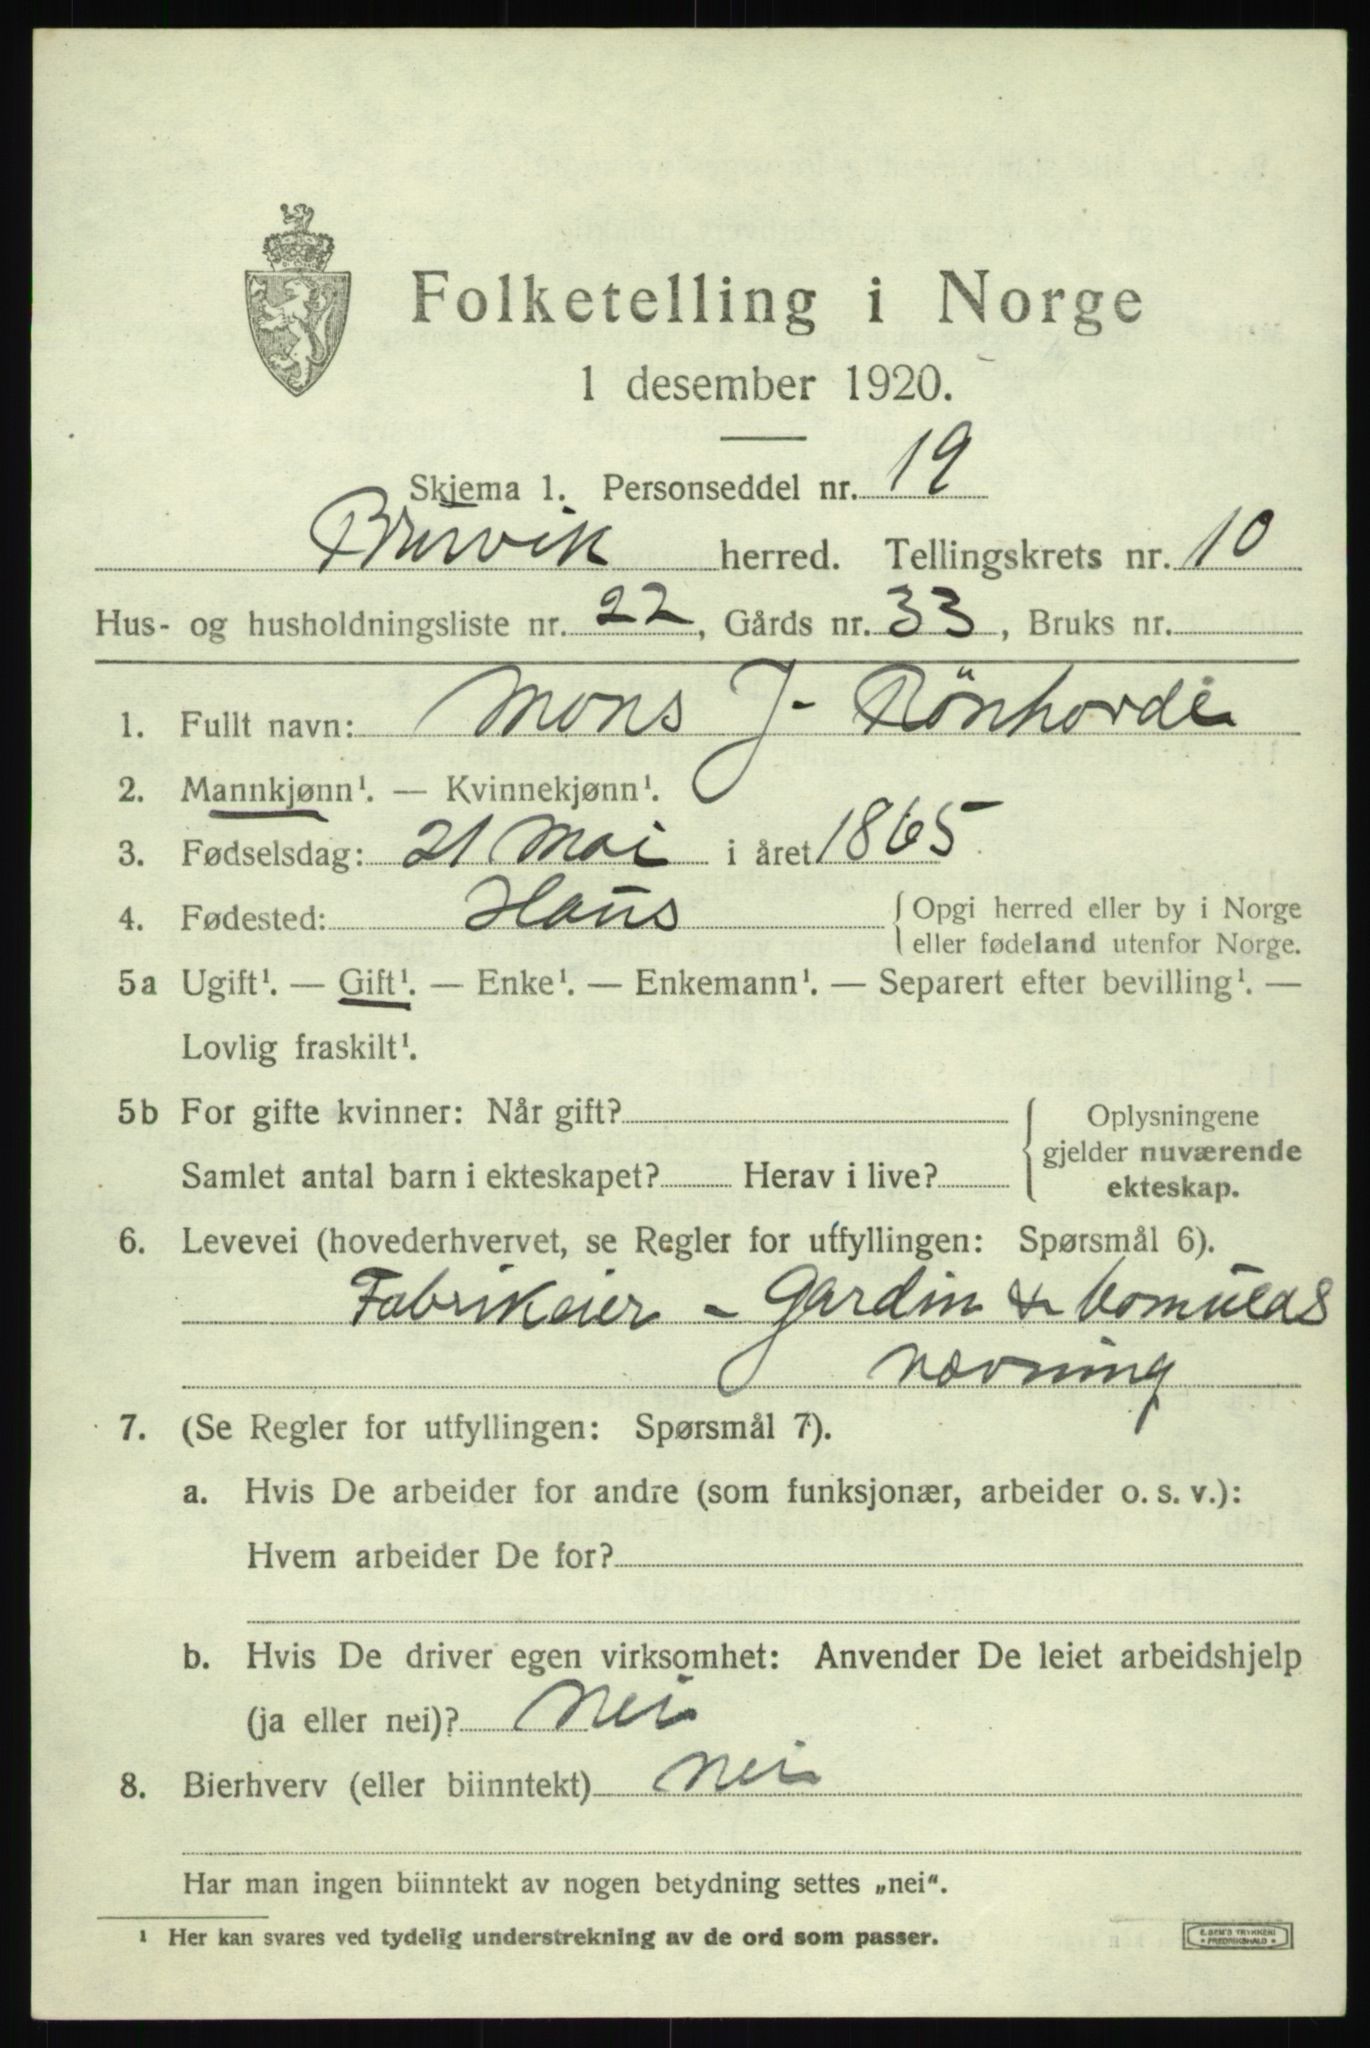 Folketelling i Norge
1 desember 1920.
Skjema 1. Personseddel nr. 19
Bruvik herred. Tellingskrets nr. 10
Hus- og husholdningsliste nr. 22, Gårds nr. 33, Bruks nr.
1. Fullt navn: Mons J. Rönhovde
2. Mannkjønn¹. — Kvinnekjønn¹.
3. Fødselsdag: 21 Mai i året 1865
4. Fødested: Haus { Opgi herred eller by i Norge
eller fødeland utenfor Norge.
5a Ugift¹. — Gift¹. — Enke¹. — Enkemann¹. — Separert efter bevilling¹. —
Lovlig fraskilt¹.
5b For gifte kvinner: Når gift? { Oplysningene
gjelder nuværende
Samlet antal barn i ekteskapet? Herav i live?
ekteskap.
6. Levevei (hovederhvervet, se Regler for utfyllingen: Spørsmål 6).
Fabrikeier - Gardin &
7. (Se Regler for utfyllingen: Spørsmål 7).
a. Hvis De arbeider for andre (som funksjonær, arbeider o. s. v.):
Hvem arbeider De for?
b. Hvis De driver egen virksomhet: Anvender De leiet arbeidshjelp
(ja eller nei)? Nei
8. Bierhverv (eller biinntekt) Nei
Har man ingen biinntekt av nogen betydning settes „nei“.
¹ Her kan svares ved tydelig understrekning av de ord som passer.
E. SEM'S TRYKKERI
* FREDRIKSHALD *